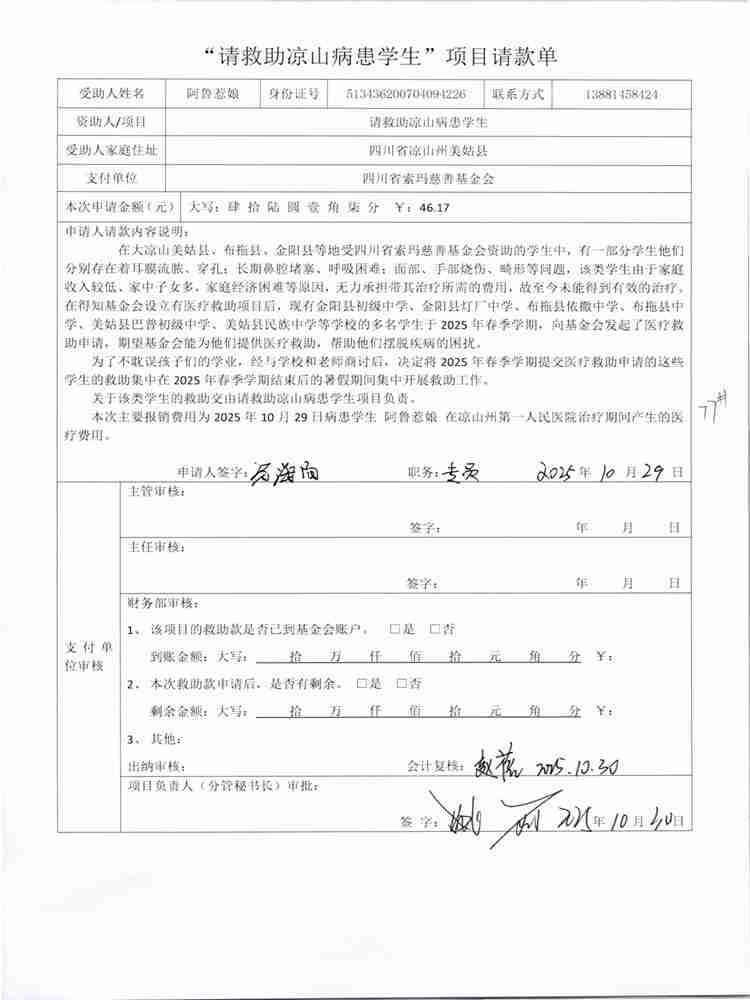 “请救助凉山病患学生”项目请款单
受助人姓名 阿鲁惹娘 身份证号 513436200704094226 联系方式 13881458424
资助人/项目 请救助凉山病患学生
受助人家庭住址 四川省凉山州美姑县
支付单位 四川省索玛慈善基金会
本次申请金额（元） 大写：肆 拾 陆 圆 壹 角 柒 分 ￥：46.17
申请人请款内容说明：
在大凉山美姑县、布拖县、金阳县等地受四川省索玛慈善基金会资助的学生中，有一部分学生他们
分别存在着耳膜流脓、穿孔；长期鼻腔堵塞、呼吸困难；面部、手部烧伤、畸形等问题，该类学生由于家庭
收入较低、家中子女多、家庭经济困难等原因，无力承担带其治疗所需的费用，故至今未能得到有效的治疗。
在得知基金会设立有医疗救助项目后，现有金阳县初级中学、金阳县灯厂中学、布拖县依撒中学、布拖县中
学、美姑县巴普初级中学、美姑县民族中学等学校的多名学生于 2025 年春季学期，向基金会发起了医疗救
助申请，期望基金会能为他们提供医疗救助，帮助他们摆脱疾病的困扰。
为了不耽误孩子们的学业，经与学校和老师商讨后，决定将 2025 年春季学期提交医疗救助申请的这些
学生的救助集中在 2025 年春季学期结束后的暑假期间集中开展救助工作。
关于该类学生的救助交由请救助凉山病患学生项目负责。
本次主要报销费用为 2025 年 10 月 29 日病患学生 阿鲁惹娘 在凉山州第一人民医院治疗期间产生的医
疗费用。
77#
申请人签字： 职务：专员 2025 年 10 月 29 日
支 付 单
位审核
主管审核：
签字： 年 月 日
主任审核：
签字： 年 月 日
财务部审核：
1、 该项目的救助款是否已到基金会账户。 □是 □否
到账金额：大写： 拾 万 仟 佰 拾 元 角 分 ￥：
2、 本次救助款申请后，是否有剩余。 □是 □否
剩余金额：大写： 拾 万 仟 佰 拾 元 角 分 ￥：
3、 其他：
出纳审核： 会计复核： 2025.10.30
项目负责人（分管秘书长）审批：
签 字： 2025年 10 月 30日